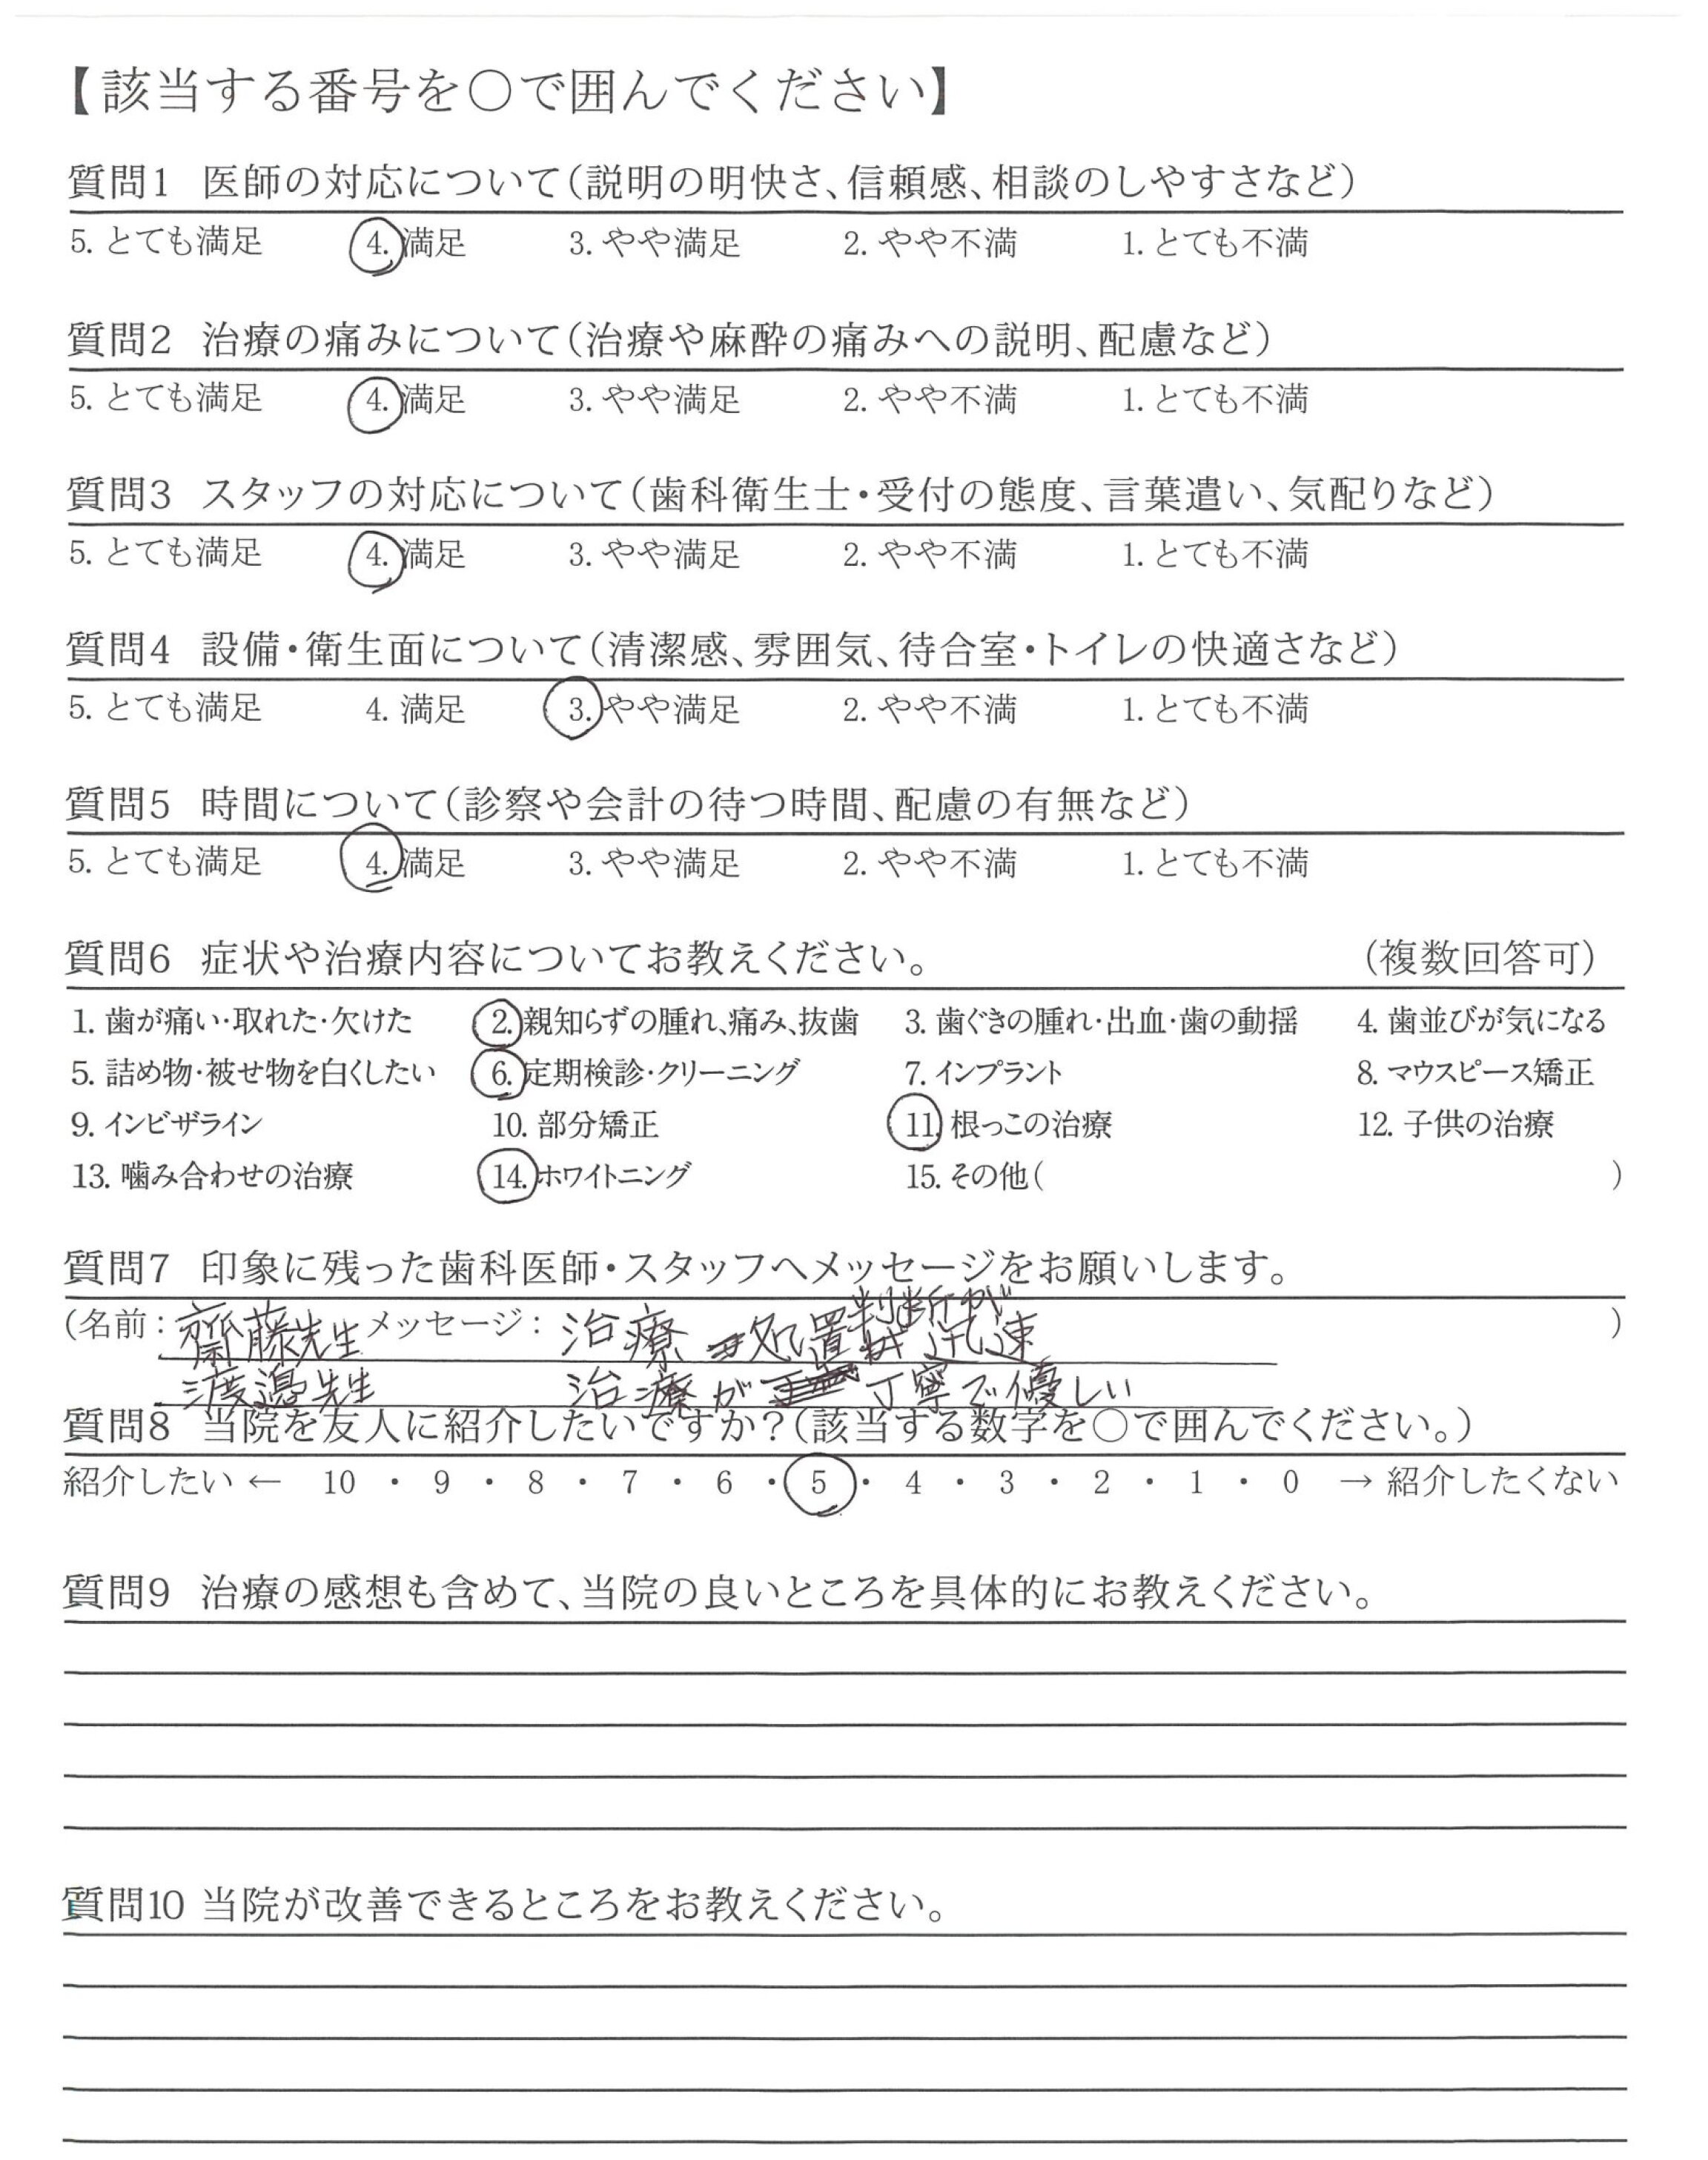 【該当する番号を○で囲んでください】
質問1 医師の対応について(説明の明快さ、信頼感、相談のしやすさなど)
5. とても満足 4. 満足 3. やや満足 2. やや不満 1. とても不満
質問2 治療の痛みについて(治療や麻酔の痛みへの説明、配慮など)
5. とても満足 4. 満足 3. やや満足 2. やや不満 1. とても不満
質問3 スタッフの対応について(歯科衛生士・受付の態度、言葉遣い、気配りなど)
5. とても満足 4. 満足 3. やや満足 2. やや不満 1. とても不満
質問4 設備・衛生面について(清潔感、雰囲気、待合室・トイレの快適さなど)
5. とても満足 4. 満足 3. やや満足 2. やや不満 1. とても不満
質問5 時間について(診察や会計の待つ時間、配慮の有無など)
5. とても満足 4. 満足 3. やや満足 2. やや不満 1. とても不満
質問6 症状や治療内容についてお教えください。 (複数回答可)
1. 歯が痛い・取れた・欠けた 2. 親知らずの腫れ、痛み、抜歯 3. 歯ぐきの腫れ・出血・歯の動揺 4. 歯並びが気になる
5. 詰め物・被せ物を白くしたい 6. 定期検診・クリーニング 7. インプラント 8. マウスピース矯正
9. インビザライン 10. 部分矯正 11. 根っこの治療 12. 子供の治療
13. 噛み合わせの治療 14. ホワイトニング 15. その他( )
質問7 印象に残った歯科医師・スタッフへメッセージをお願いします。
(名前: 齋藤先生 メッセージ: 治療 処置判断が迅速 )
渡邉先生 治療が丁寧で優しい
質問8 当院を友人に紹介したいですか?(該当する数字を○で囲んでください。)
紹介したい ← 10 ・ 9 ・ 8 ・ 7 ・ 6 ・ 5 ・ 4 ・ 3 ・ 2 ・ 1 ・ 0 → 紹介したくない
質問9 治療の感想も含めて、当院の良いところを具体的にお教えください。
質問10 当院が改善できるところをお教えください。